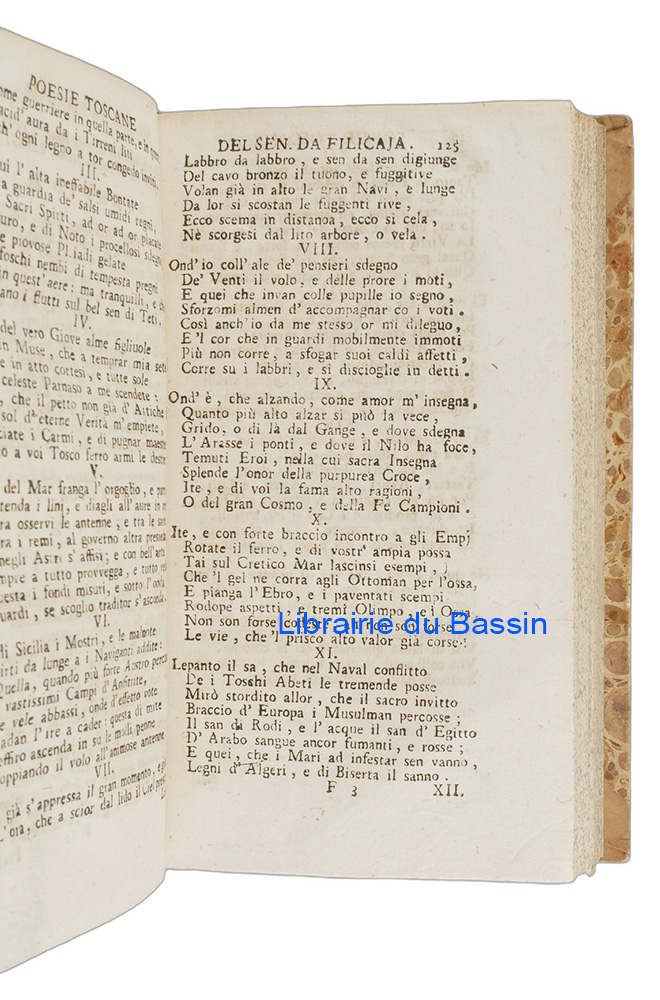 POESIE TOSCANE
ome guerriere in quella parte, e in
acid' aura da i Tirreni liti
ch' ogni legno a tor congedo inviti.
III.
ui l' alta ineffabile Bontate
a guardia de' salsi umidi regni,
Sacri Spirti, ad or ad or placate
uro, e di Noto i procellosi sdegni
e piovose Pliadi gelate
foschi nembi di tempesta pregni
in quest' aere: ma tranquilli, e
ano i flutti sul bel sen di Teti.
IV.
del vero Giove alme figliuole
an Muse, che a temprar mia sete
e in atto cortesi, e tutte sole
celeste Parnaso a me scendete:
, che il petto non già d' Attiche
sol d' eterne Verità m' empiete,
ciate i Carmi, e di pugnar maestre
o a voi Tosco ferro armi le destre
V.
del Mar franga l' orgoglio, e
tenda i lini, e diagli all' aure in
ra osservi le antenne, e tra le
ra i remi, al governo altra
negli Astri s' affisi; e con bell' arte
mpre a tutto provvegga, e tutto
esta i fondi misuri, e sotto l' onda
uardi, se scoglio traditor s' asconda.
VI.
di Sicilia i Mostri, e le malnote
irti da lunge a i Naviganti addite:
Quella, quando più forte Austro percote
vastissimi Campi d' Anfitrite,
e vele abbassi, onde d' effetto vote
adan l' ire a cader: questa di mite
effiro ascenda in su le molli penne
oppiando il volo all' animose antenne
VII.
già s' appressa il gran momento, e
L' ora, che a scior dal lido il Ciel
DEL SEN. DA FILICAJA. 125
Labbro da labbro, e sen da sen digiunge
Del cavo bronzo il tuono, e fuggitive
Volan già in alto le gran Navi, e lunge
Da lor si scostan le fuggenti rive,
Ecco scema in distanoa, ecco si cela,
Nè scorgesi dal lito arbore, o vela.
VIII.
Ond' io coll' ale de' pensieri sdegno
De' Venti il volo, e delle prore i moti,
E quei che invan colle pupille io segno,
Sforzomi almen d' accompagnar co i voti.
Così anch' io da me stesso or mi dileguo,
E 'l cor che in guardi mobilmente immoti
Più non corre, a sfogar suoi caldi affetti,
Corre su i labbri, e si discioglie in detti.
IX.
Ond' è, che alzando, come amor m' insegna,
Quanto più alto alzar si può la vece,
Grido, o di là dal Gange, e dove sdegna
L' Arasse i ponti, e dove il Nilo ha foce,
Temuti Eroi, nella cui sacra Insegna
Splende l' onor della purpurea Croce,
Ite, e di voi la fama alto ragioni,
O del gran Cosmo, e della Fè Campioni.
X.
Ite, e con forte braccio incontro a gli Empj
Rotate il ferro, e di vostr' ampia possa
Tai sul Cretico Mar lascinsi esempi,
Che 'l gel ne corra agli Ottoman per l' ossa,
E pianga l' Ebro, e i paventati scempi
Rodope aspetti, e tremi Olimpo, e i Ossa,
Non son forse coteste, non son forse
Le vie, che 'l prisco alto valor già corse?
Librairie du Bassin
XI.
Lepanto il sa, che nel Naval conflitto
De i Tosshi Abeti le tremende posse
Mirò stordito allor, che il sacro invitto
Braccio d' Europa i Musulman percosse;
Il san di Rodi, e l' acque il san d' Egitto
D' Arabo sangue ancor fumanti, e rosse;
E quei, che i Mari ad infestar sen vanno,
Legni d' Algeri, e di Biserta il sanno.
F 3 XII.